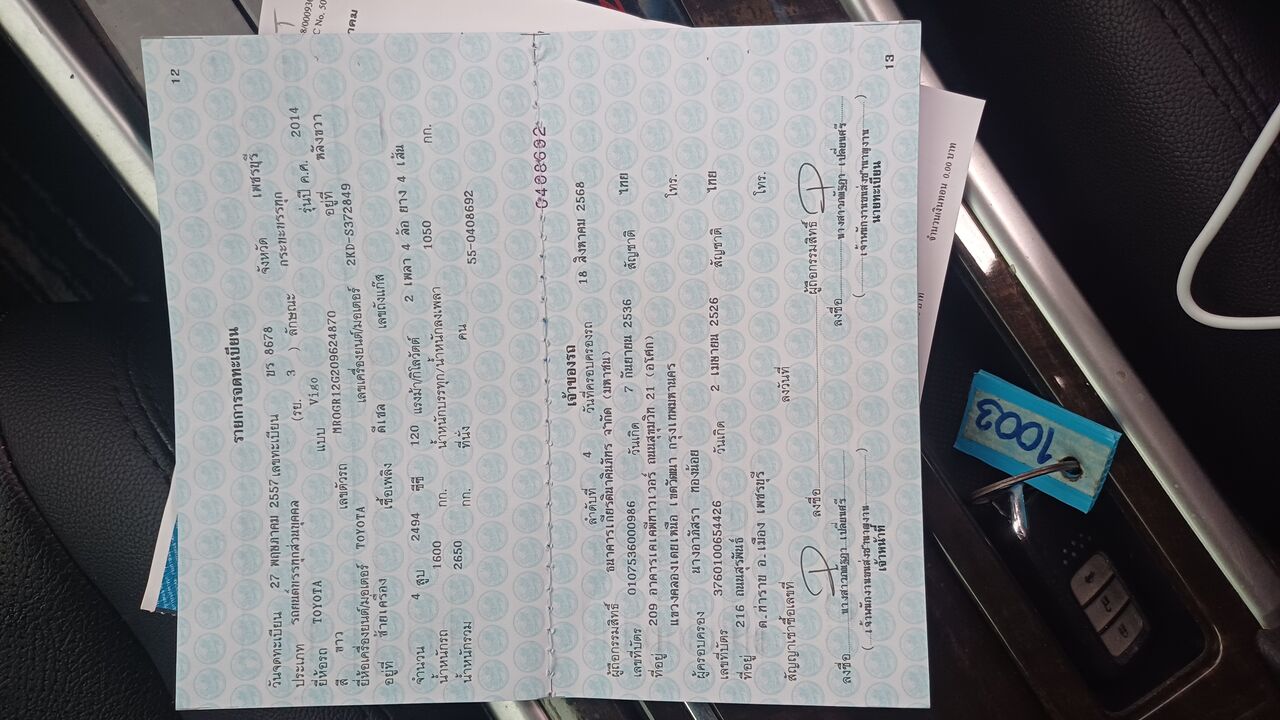 12
รายการจดทะเบียน
วันจดทะเบียน 27 พฤษภาคม 2557 เลขทะเบียน ขร 8678 จังหวัด เพชรบุรี
ประเภท รถยนต์บรรทุกส่วนบุคคล (รย. 3 ) ลักษณะ กระบะบรรทุก
ยี่ห้อรถ TOYOTA แบบ Vigo รุ่นปี ค.ศ. 2014
สี ขาว เลขตัวรถ MR0GR12G209624870 อยู่ที่ หลังขวา
ยี่ห้อเครื่องยนต์/มอเตอร์ TOYOTA เลขเครื่องยนต์/มอเตอร์ 2KD-S372849
อยู่ที่ ซ้ายเครื่อง เชื้อเพลิง ดีเซล เลขถังแก๊ส
จำนวน 4 สูบ 2494 ซีซี 120 แรงม้า/กิโลวัตต์ 2 เพลา 4 ล้อ ยาง 4 เส้น
น้ำหนักรถ 1600 กก. น้ำหนักบรรทุก/น้ำหนักลงเพลา 1050 กก.
น้ำหนักรวม 2650 กก. ที่นั่ง คน 55-0408692
0408692
เจ้าของรถ
ลำดับที่ 4 วันที่ครอบครองรถ 18 สิงหาคม 2568
ผู้ถือกรรมสิทธิ์ ธนาคารเกียรตินาคินภัทร จำกัด (มหาชน)
เลขที่บัตร 0107536000986 วันเกิด 7 กันยายน 2536 สัญชาติ ไทย
ที่อยู่ 209 อาคารเคเคพีทาวเวอร์ ถนนสุขุมวิท 21 (อโศก)
แขวงคลองเตยเหนือ เขตวัฒนา กรุงเทพมหานคร โทร.
ผู้ครอบครอง นางอาภิสวา ทองน้อย
เลขที่บัตร 3760100654426 วันเกิด 2 เมษายน 2526 สัญชาติ ไทย
ที่อยู่ 216 ถนนสุรพันธ์
ต.ท่าราบ อ.เมือง เพชรบุรี โทร.
สัญญาเช่าซื้อเลขที่ ลงวันที่
ลงชื่อ ผู้ถือกรรมสิทธิ์
ลงชื่อ ลงชื่อ
(เจ้าพนักงานขนส่งชำนาญงาน) (เจ้าพนักงานขนส่งชำนาญงาน)
เจ้าหน้าที่ นายทะเบียน
13
จำนวนเงินทอน 0.00 บาท
บาท
1003